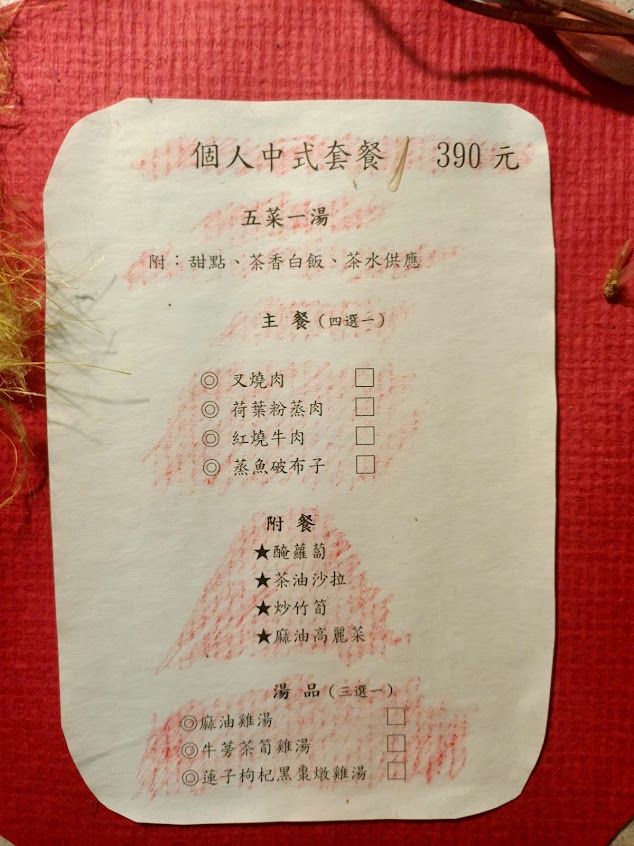 個人中式套餐 / 390 元
五菜一湯
附：甜點、茶香白飯、茶水供應
主 餐（四選一）
◎ 叉燒肉 □
◎ 荷葉粉蒸肉 □
◎ 紅燒牛肉 □
◎ 蒸魚破布子 □
附 餐
★醃蘿蔔
★茶油沙拉
★炒竹筍
★麻油高麗菜
湯 品（三選一）
◎麻油雞湯 □
◎牛蒡茶筍雞湯 □
◎蓮子枸杞黑棗燉雞湯 □